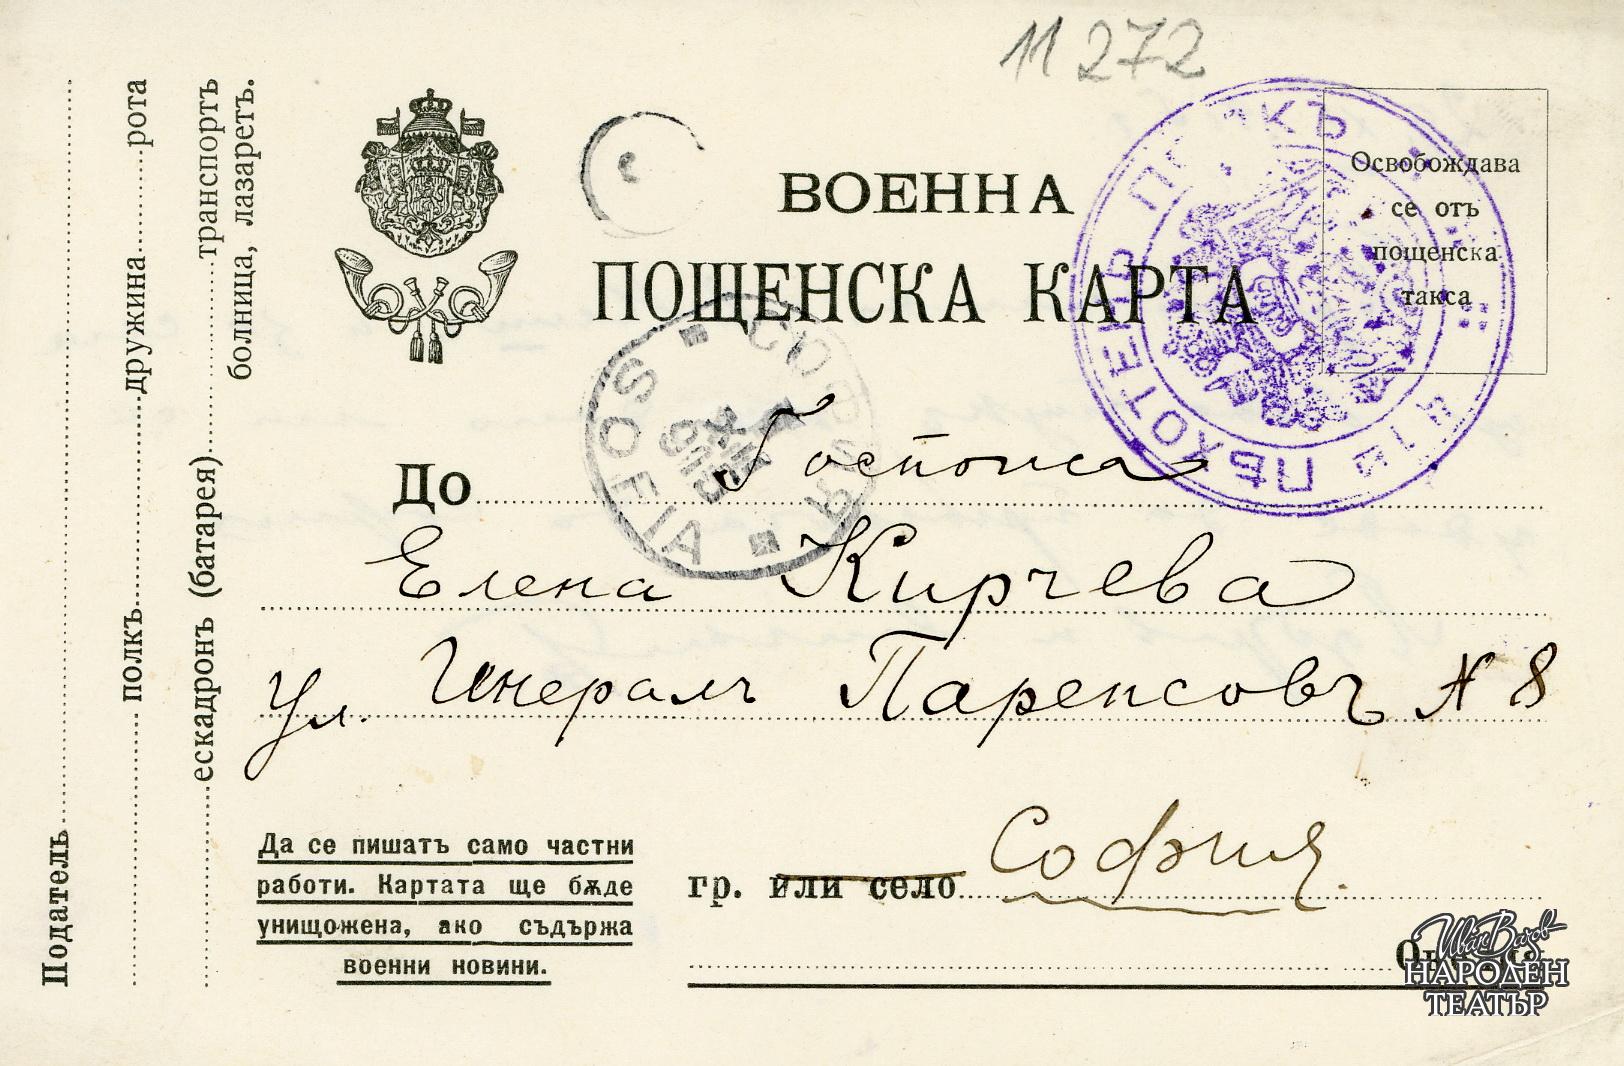 11272
ВОЕННА
ПОЩЕНСКА КАРТА
Освобождава
се отъ
пощенска
такса
ПѢХОТЕНЪ ПОЛКЪ
СОФИЯ
SOFIA
До Госпожа
Елена Кирчева
ул. Генералъ Паренсовъ № 8
гр. или село София.
Да се пишатъ само частни
работи. Картата ще бѫде
унищожена, ако съдържа
военни новини.
Податель
полкъ дружина рота
ескадронъ (батарея) транспортъ
болница, лазаретъ.
Иван Вазов
НАРОДЕН
ТЕАТЪР